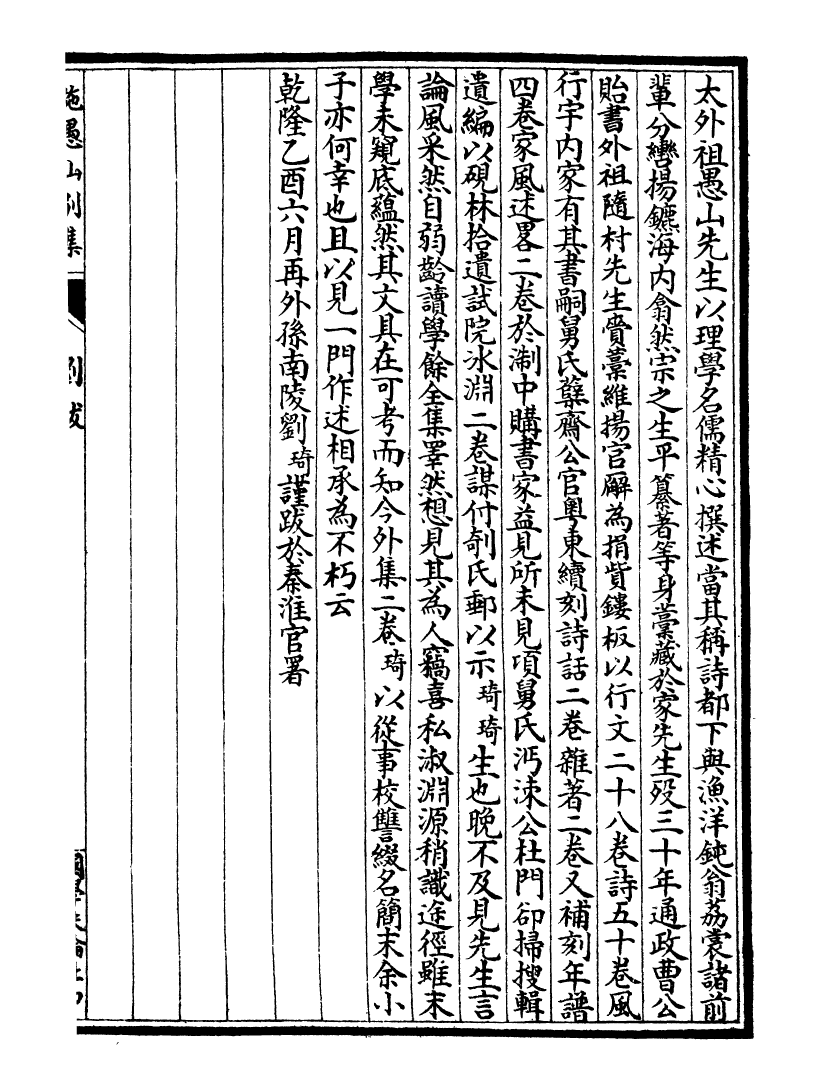 太外祖愚山先生以理學名儒精心撰述當其稱詩都下與漁洋鈍翁荔裳諸前
輩分轡揚鑣海内翕然宗之生平纂著等身藳藏於家先生殁三十年通政曹公
貽書外祖隨村先生賫藳維揚官廨為捐貲鏤板以行文二十八卷詩五十卷風
行宇内家有其書嗣舅氏蘖齋公官粤東續刻詩話二卷雜著二卷又補刻年譜
四卷家風述畧二卷於淛中購書家益見所未見項舅氏沔洓公杜門卻掃搜輯
遺編以硯林拾遺試院冰淵二卷謀付剞氏郵以示琦琦生也晚不及見先生言
論風采然自弱齡讀學餘全集睪然想見其為人竊喜私淑淵源稍識途徑雖末
學未窺底蘊然其文具在可考而知今外集二卷琦以從事校讐綴名簡末余小
子亦何幸也且以見一門作述相承為不朽云
乾隆乙酉六月再外孫南陵劉琦謹跋於秦淮官署
施愚山别集
劉跋